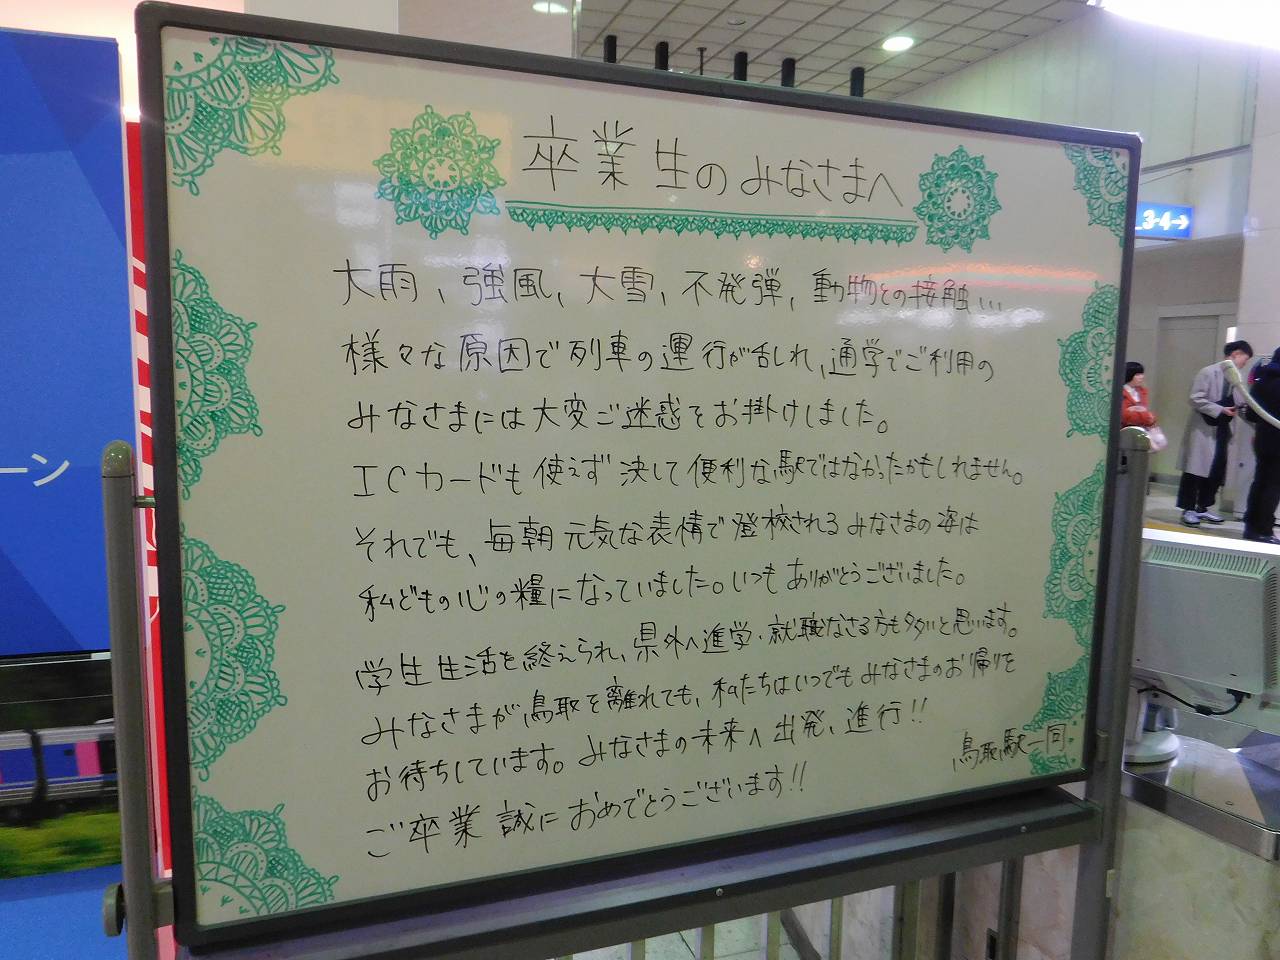 卒業生のみなさまへ
大雨、強風、大雪、不発弾、動物との接触...
様々な原因で列車の運行が乱れ、通学でご利用の
みなさまには大変ご迷惑をお掛けしました。
ICカードも使えず決して便利な駅ではなかったかもしれません。
それでも、毎朝元気な表情で登校されるみなさまの姿は
私どもの心の糧になっていました。いつもありがとうございました。
学生生活を終えられ、県外へ進学・就職なさる方も多いと思います。
みなさまが鳥取を離れても、私たちはいつでもみなさまのお帰りを
お待ちしています。みなさまの未来へ出発、進行!!
ご卒業誠におめでとうございます!!
鳥取駅一同
ーン
3-4→